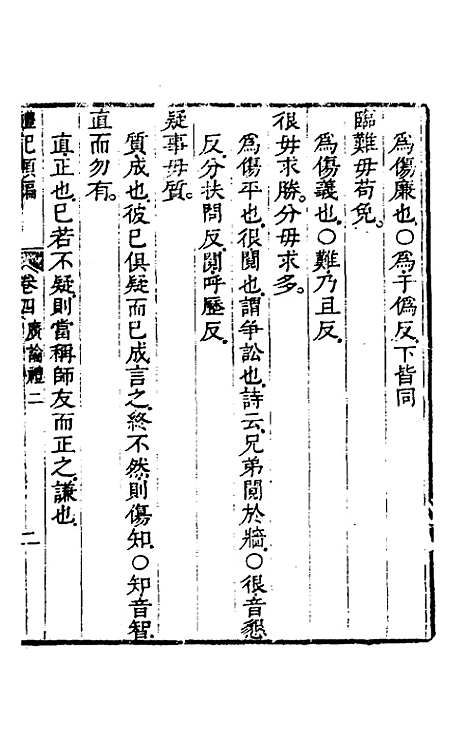 爲傷廉也〇爲于僞反下皆同
臨難毋苟免
爲傷義也〇難乃且反
很毋求勝分毋求多
爲傷平也很鬩也謂爭訟也詩云兄弟鬩於牆〇很音懇
反分扶問反鬩呼歷反
疑事毋質
質成也彼已俱疑而已成言之終不然則傷知〇知音智
直而勿有
直正也已若不疑則當稱師友而正之謙也
禮記類編 卷四 廣論禮二 二